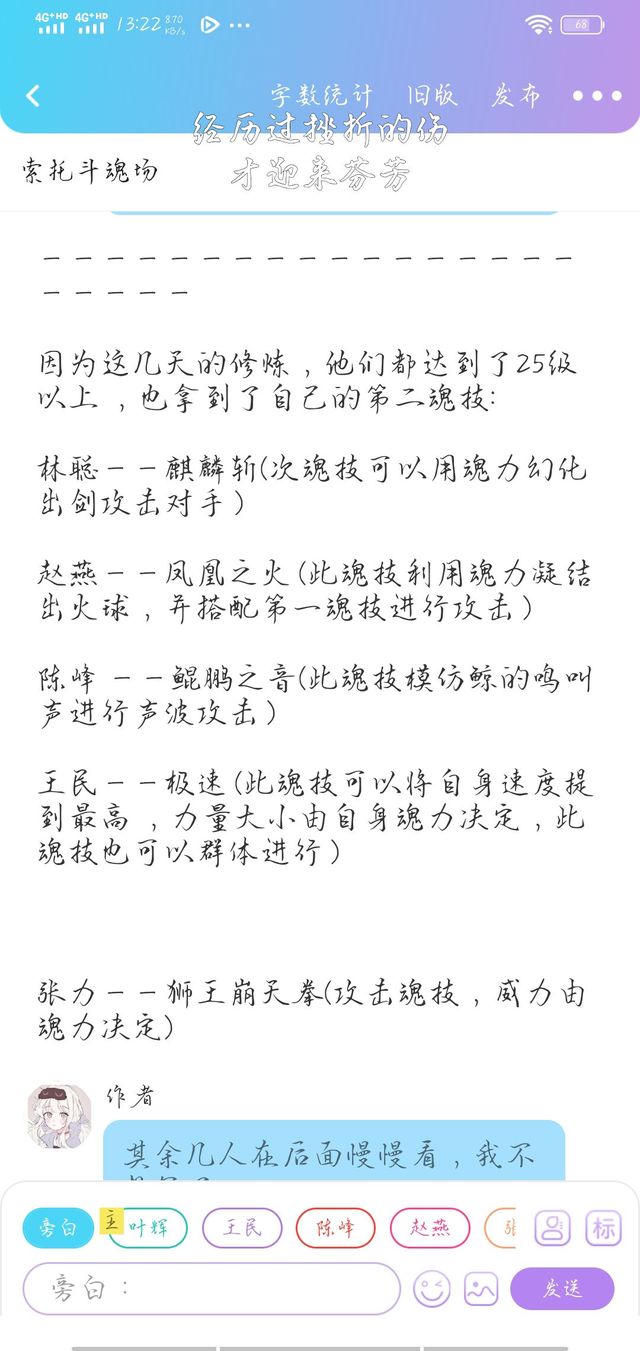 4G+HD 4G+HD 13:22 8.70 KB/s 68
字数统计 旧版 发布
经历过挫折的伤
才迎来芬芳
索托斗魂场
－－－－－－－－－－－－－－－－－
－－－－－
因为这几天的修炼，他们都达到了25级
以上，也拿到了自己的第二魂技:
林聪－－麒麟斩(次魂技可以用魂力幻化
出剑攻击对手)
赵燕－－凤凰之火(此魂技利用魂力凝结
出火球，并搭配第一魂技进行攻击)
陈峰 －－鲲鹏之音(此魂技模仿鲸的鸣叫
声进行声波攻击)
王民－－极速(此魂技可以将自身速度提
到最高 ，力量大小由自身魂力决定，此
魂技也可以群体进行)
张力－－狮王崩天拳(攻击魂技，威力由
魂力决定)
作者
其余几人在后面慢慢看，我不
旁白 主 叶辉 王民 陈峰 赵燕 标
旁白： 发送